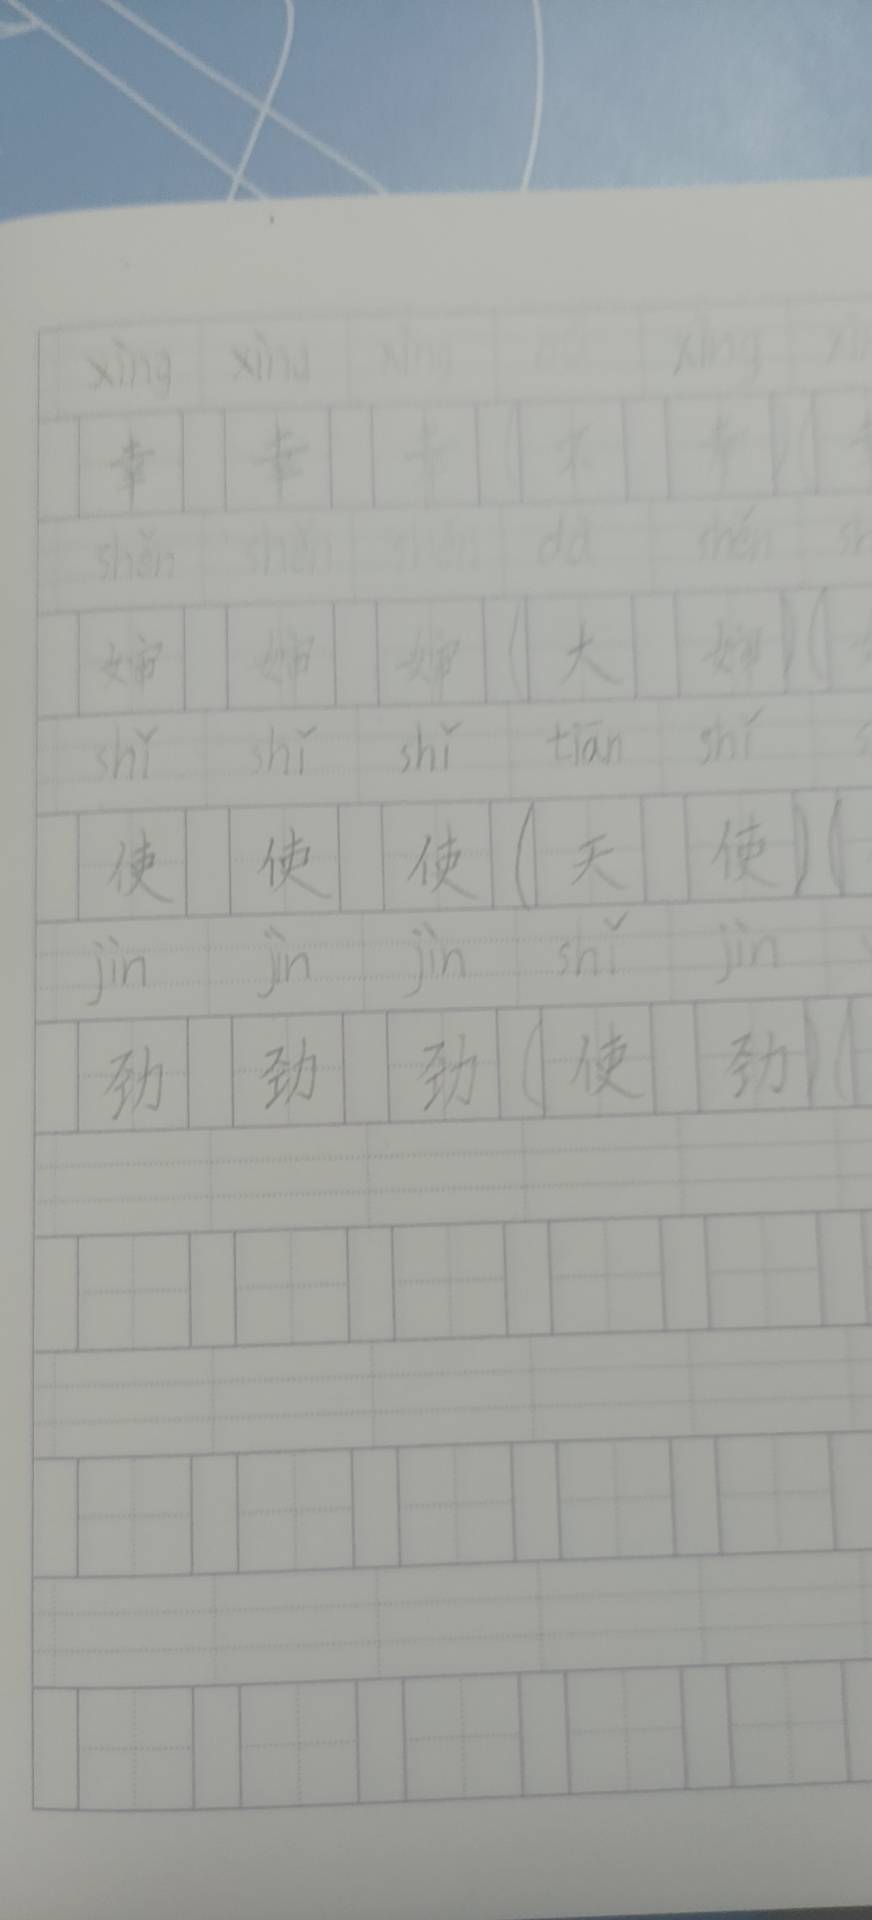 xìng xìng xìng bù xìng
幸 幸 幸 ( 不 幸 ) (
shěn shěn shěn dà shěn sh
婶 婶 婶 ( 大 婶 ) (
shǐ shǐ shǐ tiān shǐ
使 使 使 ( 天 使 ) (
jìn jìn jìn shǐ jìn
劲 劲 劲 ( 使 劲 ) (